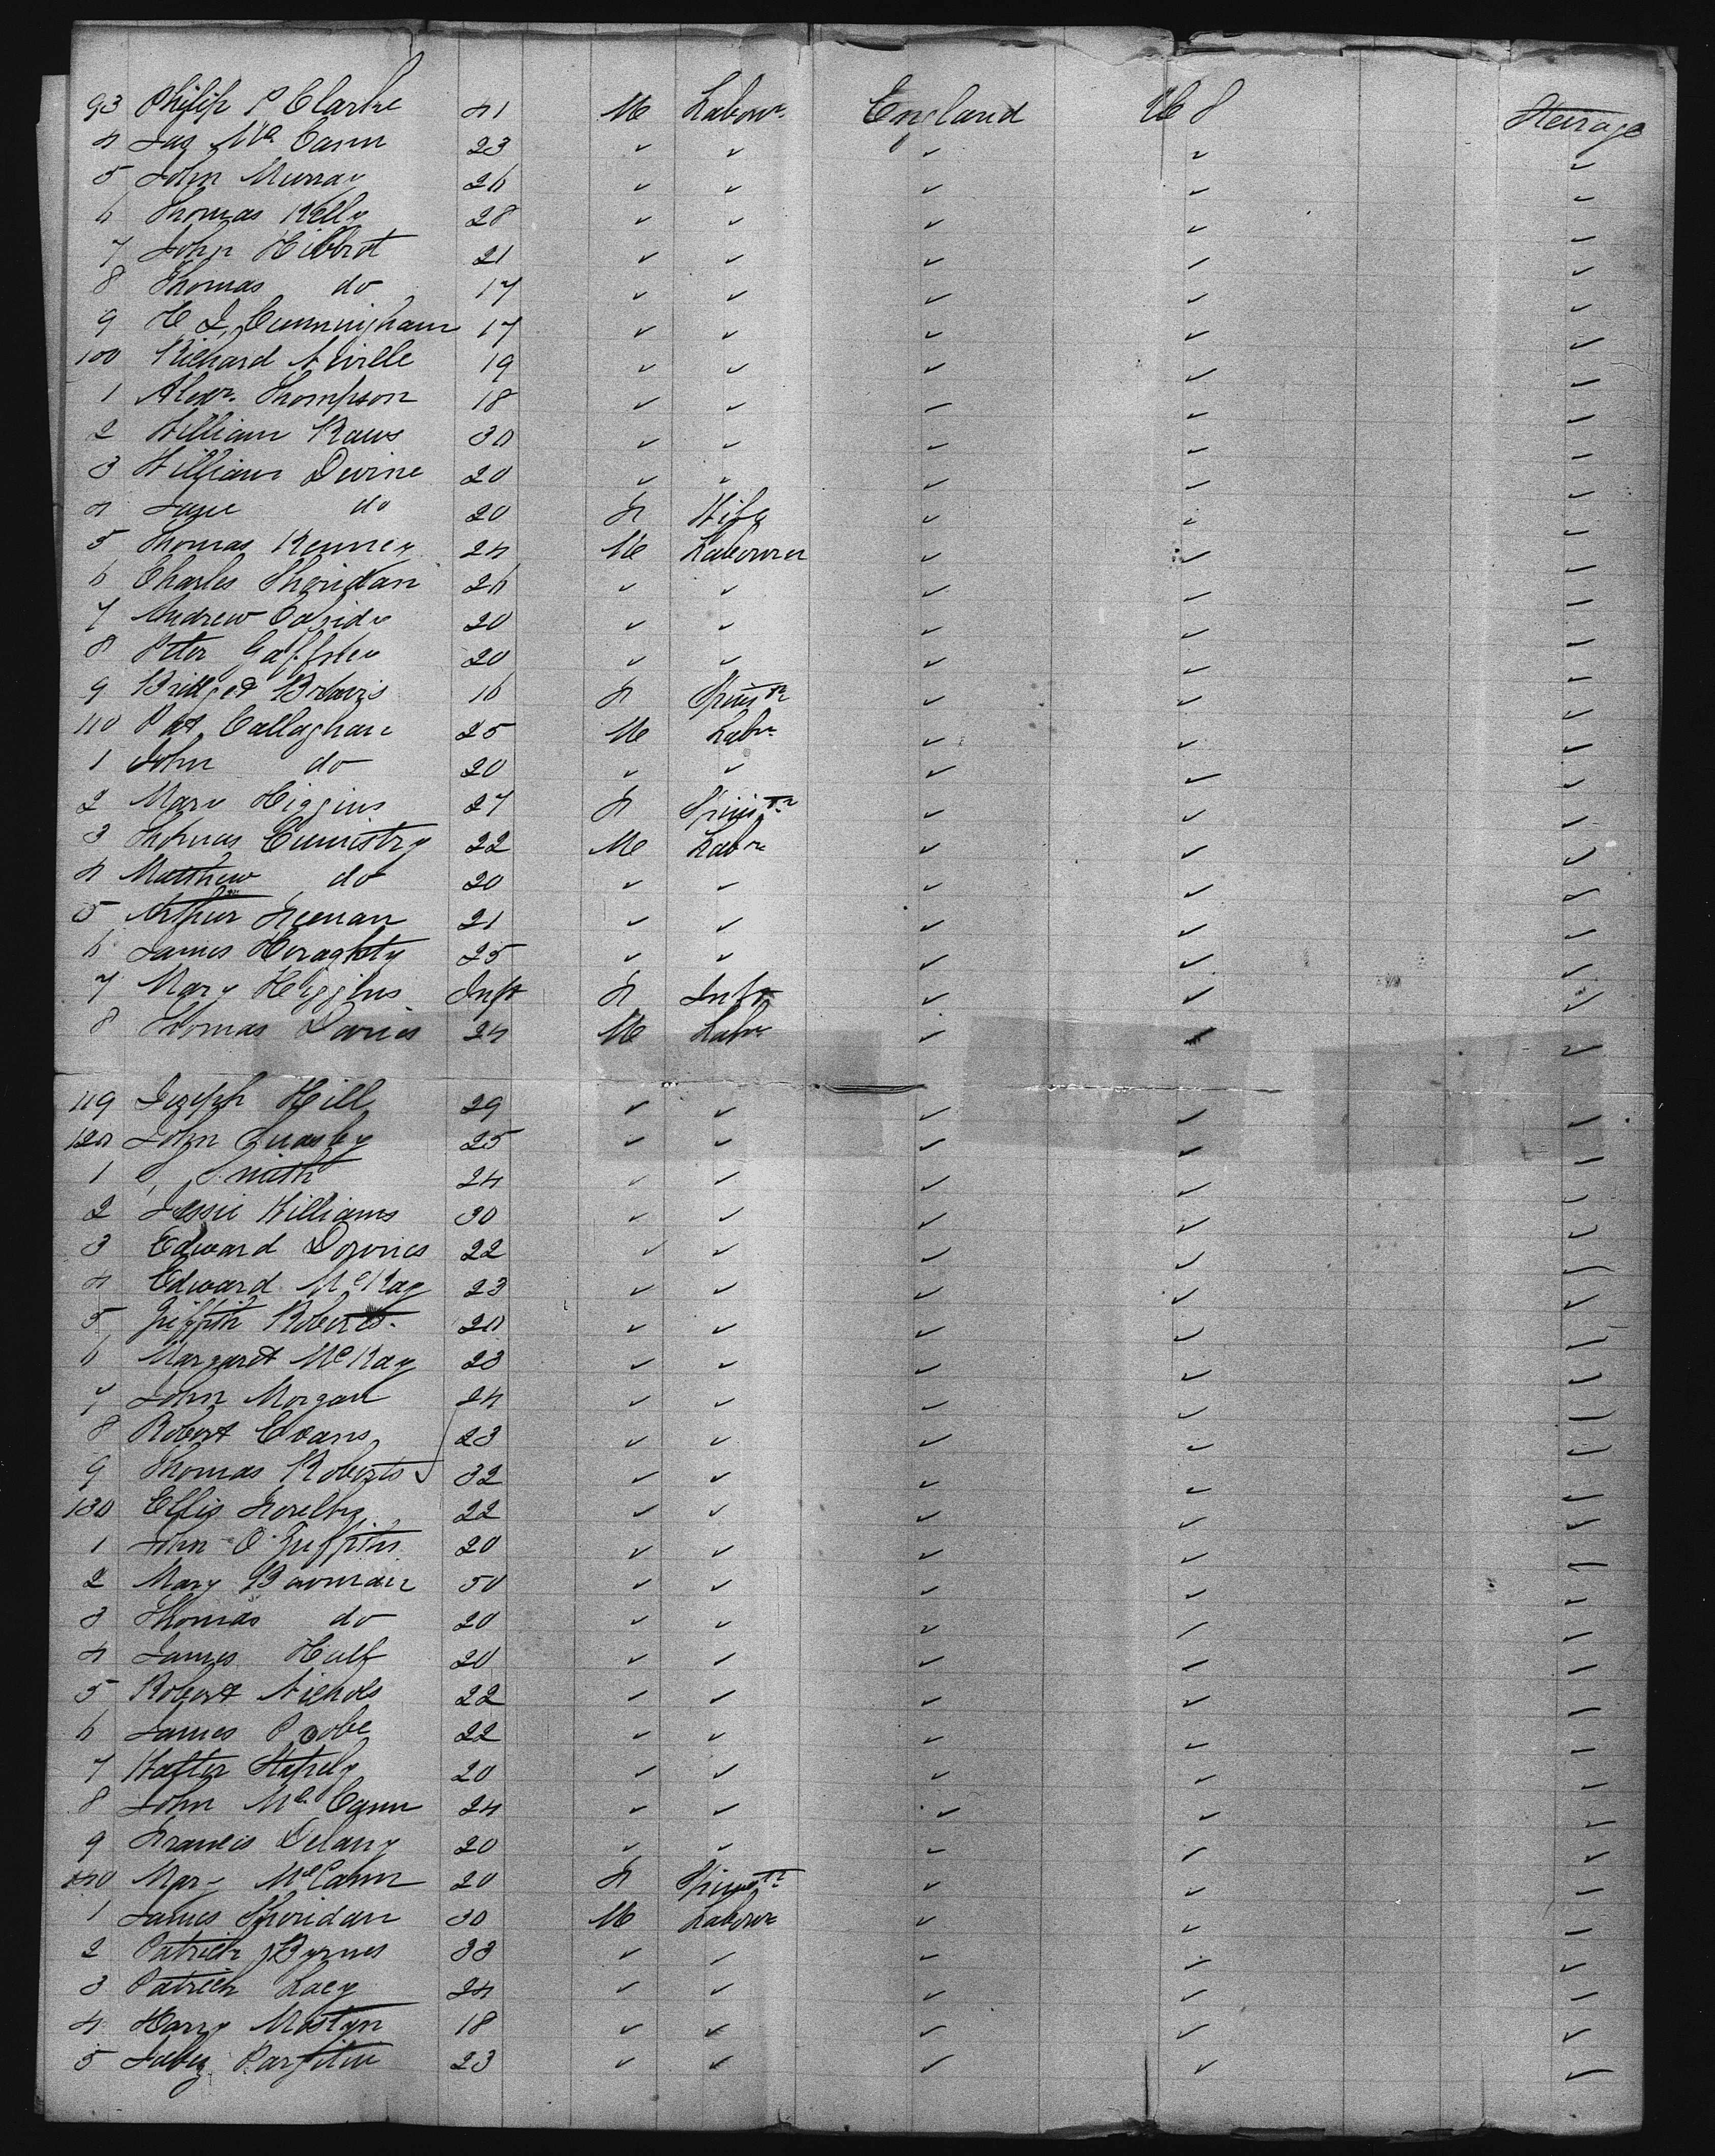 93 Philip P Clarke 41 M Labour England U S Steirage
4 Jas Mc Cann 23 ✓ ✓ ✓ ✓ ✓
5 John Murray 26 ✓ ✓ ✓ ✓ ✓
6 Thomas Kelly 28 ✓ ✓ ✓ ✓ ✓
7 John Hibbrot 21 ✓ ✓ ✓ ✓ ✓
8 Thomas do 17 ✓ ✓ ✓ ✓ ✓
9 H J Cunningham 17 ✓ ✓ ✓ ✓ ✓
100 Richard Neville 19 ✓ ✓ ✓ ✓ ✓
1 Alexr. Thompson 18 ✓ ✓ ✓ ✓ ✓
2 William Raws 30 ✓ ✓ ✓ ✓ ✓
3 William Devine 20 ✓ ✓ ✓ ✓ ✓
4 Jane do 20 F Wife ✓ ✓ ✓
5 Thomas Kenney 24 M Labourer ✓ ✓ ✓
6 Charles Sheridan 26 ✓ ✓ ✓ ✓ ✓
7 Andrew 20 ✓ ✓ ✓ ✓ ✓
8 Peter Gaffney 20 ✓ ✓ ✓ ✓ ✓
9 Bridget 16 F Spinstr ✓ ✓ ✓
110 Pat Callaghan 25 M Labr ✓ ✓ ✓
1 John do 20 ✓ ✓ ✓ ✓ ✓
2 Mary Higgins 27 F Spinstr ✓ ✓ ✓
3 Thomas Cumistry 22 M Labr ✓ ✓ ✓
4 Matthew do 20 ✓ ✓ ✓ ✓ ✓
5 Arthur Heenan 21 ✓ ✓ ✓ ✓ ✓
6 James Heraghty 25 ✓ ✓ ✓ ✓ ✓
7 Mary Higgins Inft F Inft ✓ ✓ ✓
8 Thomas Davies 24 M Labr ✓ ✓ ✓
119 Joseph Hill 29 ✓ ✓ ✓ ✓ ✓
120 John Quasby 25 ✓ ✓ ✓ ✓ ✓
1 Smith 24 ✓ ✓ ✓ ✓ ✓
2 Jessie Williams 30 ✓ ✓ ✓ ✓ ✓
3 Edward Downes 22 ✓ ✓ ✓ ✓ ✓
4 Edward McKay 23 ✓ ✓ ✓ ✓ ✓
5 Griffith Roberts 20 ✓ ✓ ✓ ✓ ✓
6 Margaret McKay 23 ✓ ✓ ✓ ✓ ✓
7 John Morgan 24 ✓ ✓ ✓ ✓ ✓
8 Robert Evans 23 ✓ ✓ ✓ ✓ ✓
9 Thomas Roberts 32 ✓ ✓ ✓ ✓ ✓
130 Ellis 22 ✓ ✓ ✓ ✓ ✓
1 John O Griffith 20 ✓ ✓ ✓ ✓ ✓
2 Mary Bowman 50 ✓ ✓ ✓ ✓ ✓
3 Thomas do 20 ✓ ✓ ✓ ✓ ✓
4 James Hulf 20 ✓ ✓ ✓ ✓ ✓
5 Robert Nichols 22 ✓ ✓ ✓ ✓ ✓
6 James Probe 22 ✓ ✓ ✓ ✓ ✓
7 Walter Stately 20 ✓ ✓ ✓ ✓ ✓
8 John Mc Cann 24 ✓ ✓ ✓ ✓ ✓
9 Francis Delany 20 ✓ ✓ ✓ ✓ ✓
140 Mary McCann 20 F Spinstr ✓ ✓ ✓
1 James Sheridan 30 M Labour ✓ ✓ ✓
2 Patrick Byrnes 33 ✓ ✓ ✓ ✓ ✓
3 Patrick Lacy 24 ✓ ✓ ✓ ✓ ✓
4 Harry Mostyn 18 ✓ ✓ ✓ ✓ ✓
5 Jabez Parfitin 23 ✓ ✓ ✓ ✓ ✓